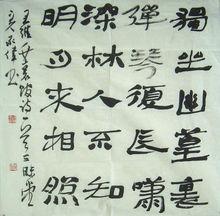 獨坐幽篁裏
彈琴復長嘯
深林人不知
明月来相照
王維竹裏館詩一首